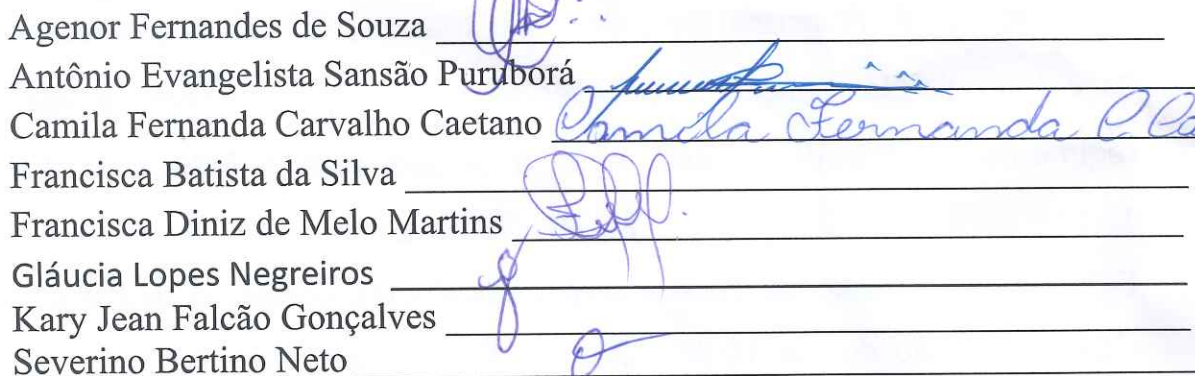 Agenor Fernandes de Souza
Antônio Evangelista Sansão Puruborá
Camila Fernanda Carvalho Caetano Camila Fernanda C. Ca
Francisca Batista da Silva
Francisca Diniz de Melo Martins
Gláucia Lopes Negreiros
Kary Jean Falcão Gonçalves
Severino Bertino Neto